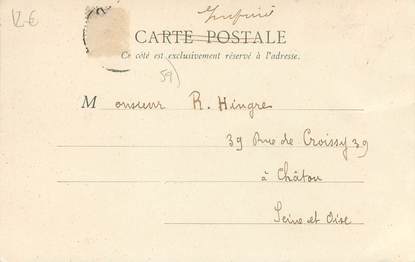 12 €
Imprimé
CARTE POSTALE
Ce côté est exclusivement réservé à l'adresse.
59)
Monsieur R. Hingre
39 Rue de Croissy 39
à Châtou
Seine et Oise